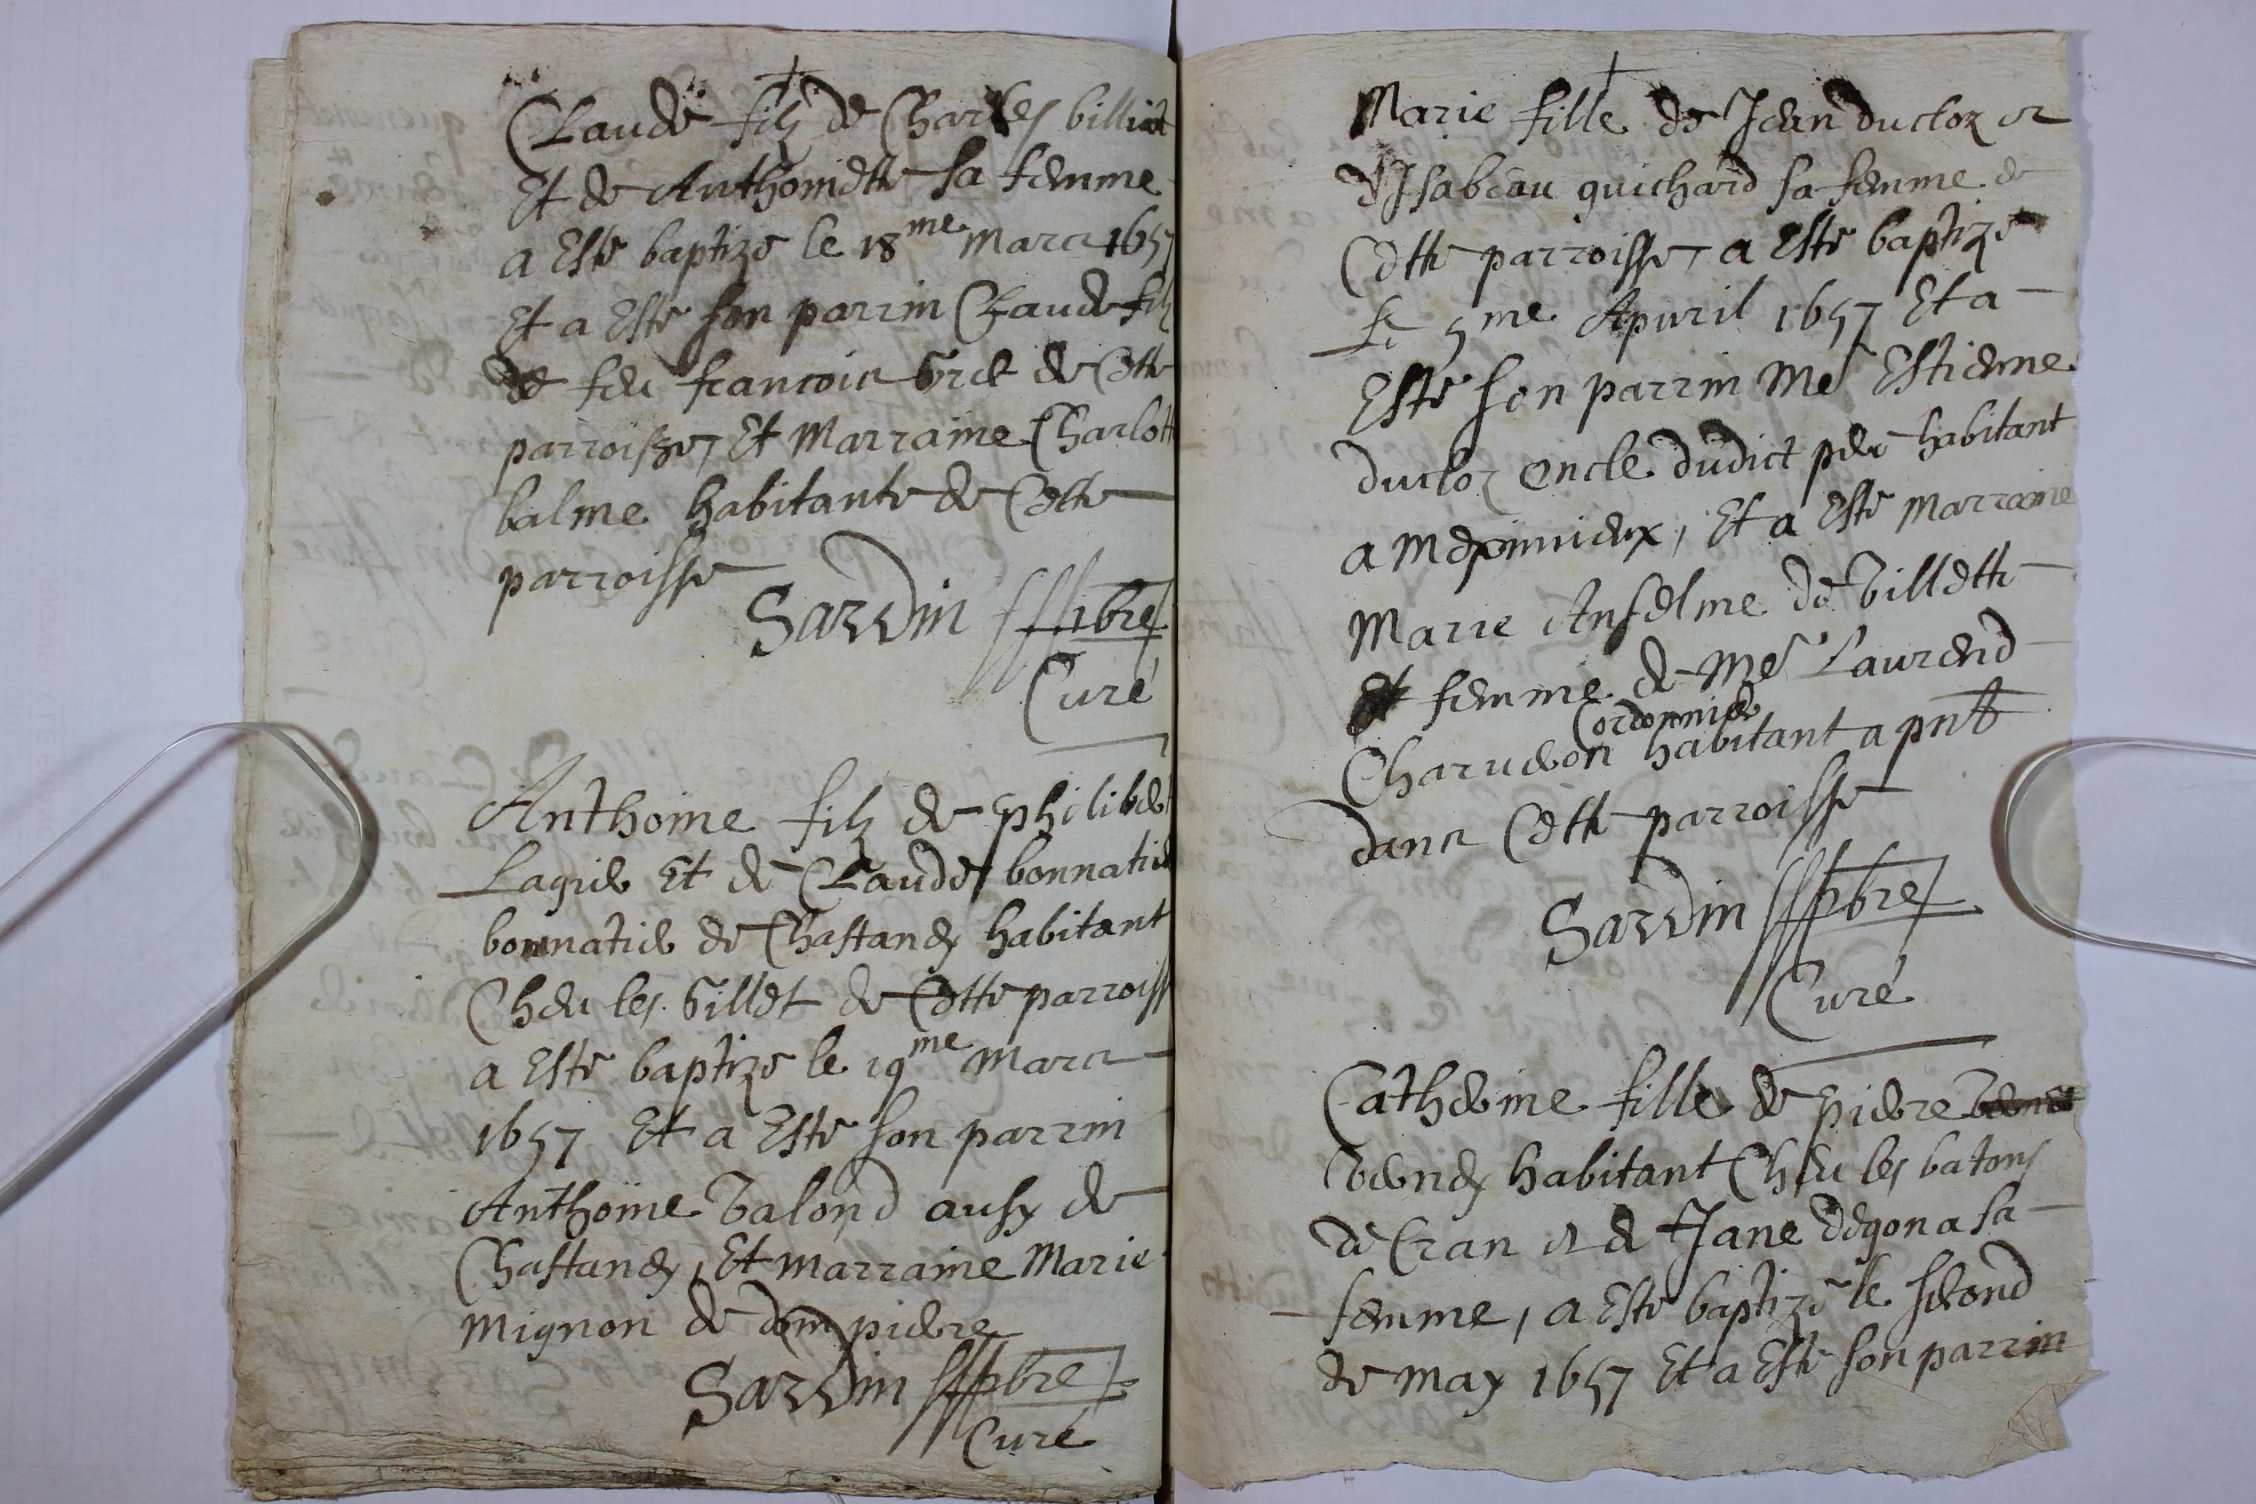 Claude filz de Charles billiat
Et de Anthoinette sa femme
a Este baptize le 18me Mars 1657
Et a Este son parrin Claude filz
de feu francois de Cette
parroisse, Et Marraine Charlott
balme habitante de Cette
parroisse
Sardin pbre
Curé
Anthoine filz de philibert
Et de Claude bonnatier
bonnatier de Chastanay habitant
Cheu les Gillet de Cette parroiss
a Este baptize le 19me Mars
1657 Et a Este son parrin
Anthoine Talond aussy de
Chastanay, Et marraine Marie
Mignon de dompierre
Sardin pbre
Curé
Marie fille de Jean ducloz et
d'Isabeau guichard sa femme de
Cette parroisse, a Este baptize
le 5me Apuril 1657 Et a
Este son parrin Me Estienne
ducloz oncle dudict pere habitant
a Meximieux, Et a Este Marraine
Marie Anselme de Villette
Et femme de Me Laurend
Cordonnier
Charueon habitant a pnt
dans Cette parroisse
Sardin pbre
Curé
Catherine fille de pierre
habitant Cheu les batons
de Cran et de Jane degona sa
femme, a Este baptize le second
de may 1657 Et a Este son parrin